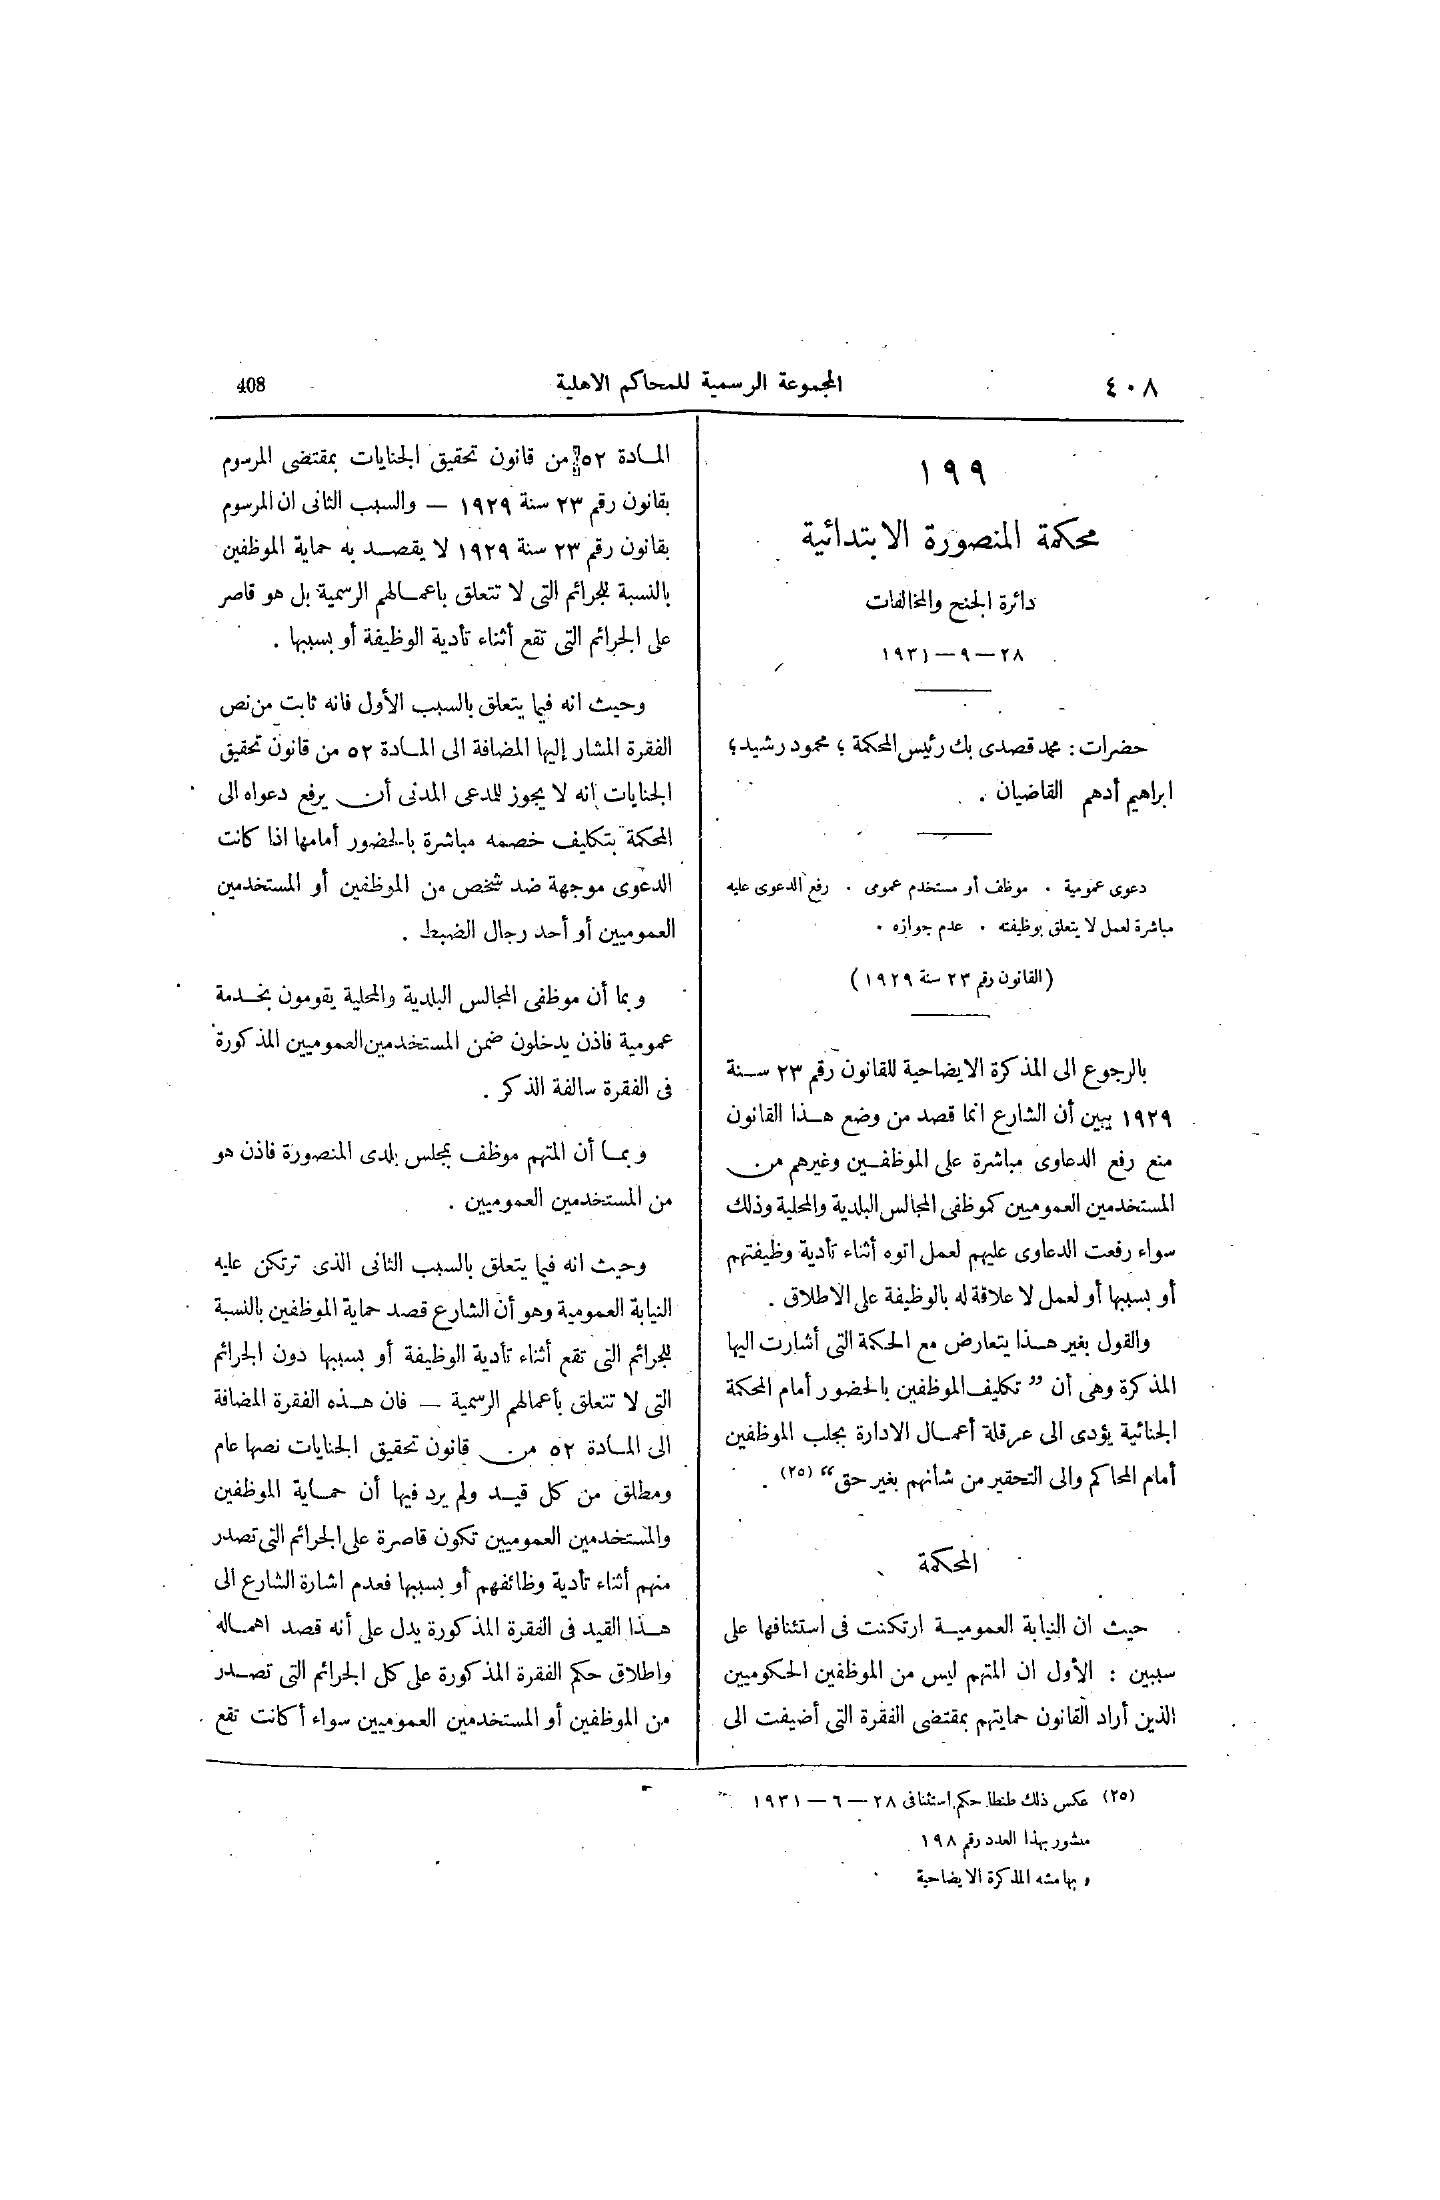 ٤٠٨
المجموعة الرسمية للمحاكم الاهلية
408
١٩٩
محكمة المنصورة الابتدائية
دائرة الجنح والمخالفات
٢٨ — ٩ — ١٩٣١
حضرات : محمد قصدى بك رئيس المحكمة ؛ محمود رشيد ؛
ابراهيم أدهم القاضيان .
دعوى عمومية . موظف أو مستخدم عمومى . رفع الدعوى عليه
مباشرة لعمل لا يتعلق بوظيفته . عدم جوازه .
(القانون رقم ٢٣ سنة ١٩٢٩)
بالرجوع الى المذكرة الايضاحية للقانون رقم ٢٣ سنة
١٩٢٩ يبين أن الشارع انما قصد من وضع هذا القانون
منع رفع الدعاوى مباشرة على الموظفين وغيرهم من
المستخدمين العموميين كموظفى المجالس البلدية والمحلية وذلك
سواء رفعت الدعاوى عليهم لعمل اتوه أثناء تأدية وظيفتهم
أو بسببها أو لعمل لا علاقة له بالوظيفة على الاطلاق .
والقول بغير هذا يتعارض مع الحكمة التى أشارت اليها
المذكرة وهى أن ” تكليف الموظفين بالحضور أمام المحكمة
الجنائية يؤدى الى عرقلة أعمال الادارة بجلب الموظفين
أمام المحاكم والى التحقير من شأنهم بغير حق “ (٢٥) .
المحكمة
حيث ان النيابة العمومية ارتكنت فى استئنافها على
سببين : الأول ان المتهم ليس من الموظفين الحكوميين
الذين أراد القانون حمايتهم بمقتضى الفقرة التى أضيفت الى
المادة ٥٢ من قانون تحقيق الجنايات بمقتضى المرسوم
بقانون رقم ٢٣ سنة ١٩٢٩ — والسبب الثانى ان المرسوم
بقانون رقم ٢٣ سنة ١٩٢٩ لا يقصد به حماية الموظفين
بالنسبة للجرائم التى لا تتعلق باعمالهم الرسمية بل هو قاصر
على الجرائم التى تقع أثناء تأدية الوظيفة أو بسببها .
وحيث انه فيما يتعلق بالسبب الأول فانه ثابت من نص
الفقرة المشار إليها المضافة الى المادة ٥٢ من قانون تحقيق
الجنايات انه لا يجوز للمدعى المدنى أن يرفع دعواه الى
المحكمة بتكليف خصمه مباشرة بالحضور أمامها اذا كانت
الدعوى موجهة ضد شخص من الموظفين أو المستخدمين
العموميين أو أحد رجال الضبط .
وبما أن موظفى المجالس البلدية والمحلية يقومون بخدمة
عمومية فاذن يدخلون ضمن المستخدمين العموميين المذكورة
فى الفقرة سالفة الذكر .
وبما أن المتهم موظف بمجلس بلدى المنصورة فاذن هو
من المستخدمين العموميين .
وحيث انه فيما يتعلق بالسبب الثانى الذى ترتكن عليه
النيابة العمومية وهو أن الشارع قصد حماية الموظفين بالنسبة
للجرائم التى تقع أثناء تأدية الوظيفة أو بسببها دون الجرائم
التى لا تتعلق بأعمالهم الرسمية — فان هذه الفقرة المضافة
الى المادة ٥٢ من قانون تحقيق الجنايات نصها عام
ومطلق من كل قيد ولم يرد فيها أن حماية الموظفين
والمستخدمين العموميين تكون قاصرة على الجرائم التى تصدر
منهم أثناء تأدية وظائفهم أو بسببها فعدم اشارة الشارع الى
هذا القيد فى الفقرة المذكورة يدل على أنه قصد اهماله
واطلاق حكم الفقرة المذكورة على كل الجرائم التى تصدر
من الموظفين أو المستخدمين العموميين سواء أكانت تقع
(٢٥) عكس ذلك طنطا حكم استئنافى ٢٨ — ٦ — ١٩٣١
منشور بهذا العدد رقم ١٩٨
وبهامشه المذكرة الايضاحية